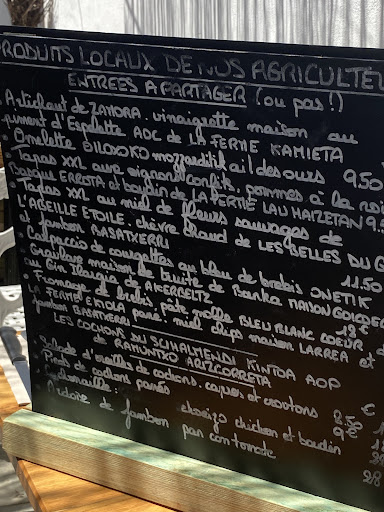 PRODUITS LOCAUX DE NOS AGRICULTEU
ENTREES A PARTAGER (ou pas!)
Artichaut de ZAMORA. vinaigrette maison au
piment d'Espelette AOC de LA FERME KAMIETA
• Omelette BILOXOKO mozzarella ail des ours 9.50
Tapas XXL aux oignons confits, pommes à la
Basque ERROTA et boudin de LA FERME LAU HAIZETAN 9.5
• Tapas XXL au miel de fleurs sauvages de
L'ABEILLE ETOILE. chèvre chaud de LES BELLES DU G
et jambon BASATXERRI
Carpaccio de courgettes au bleu de brebis ONETIK 11.50
Gravlax maison de truite de Banka MAISON GOICOE
au Gin Ilargia de AKERBELTZ
• Fromage de brebis, pâte molle BLEU BLANC COEUR 13€
LA FERME EKIOLA parc. miel chips maison LARREA et
jambon BASATXERRI
LES COCHONS DU SCHALMENDI KINTOA AOP
de RAMUNTXO ARIZCORRETA
Salade d'oreilles de cochons. capres et croutons 8.50
Pieds de cochons panés 9€
Cochonaille: chorizo chicken et boudin
Ardoise de jambon pan con tomate 28